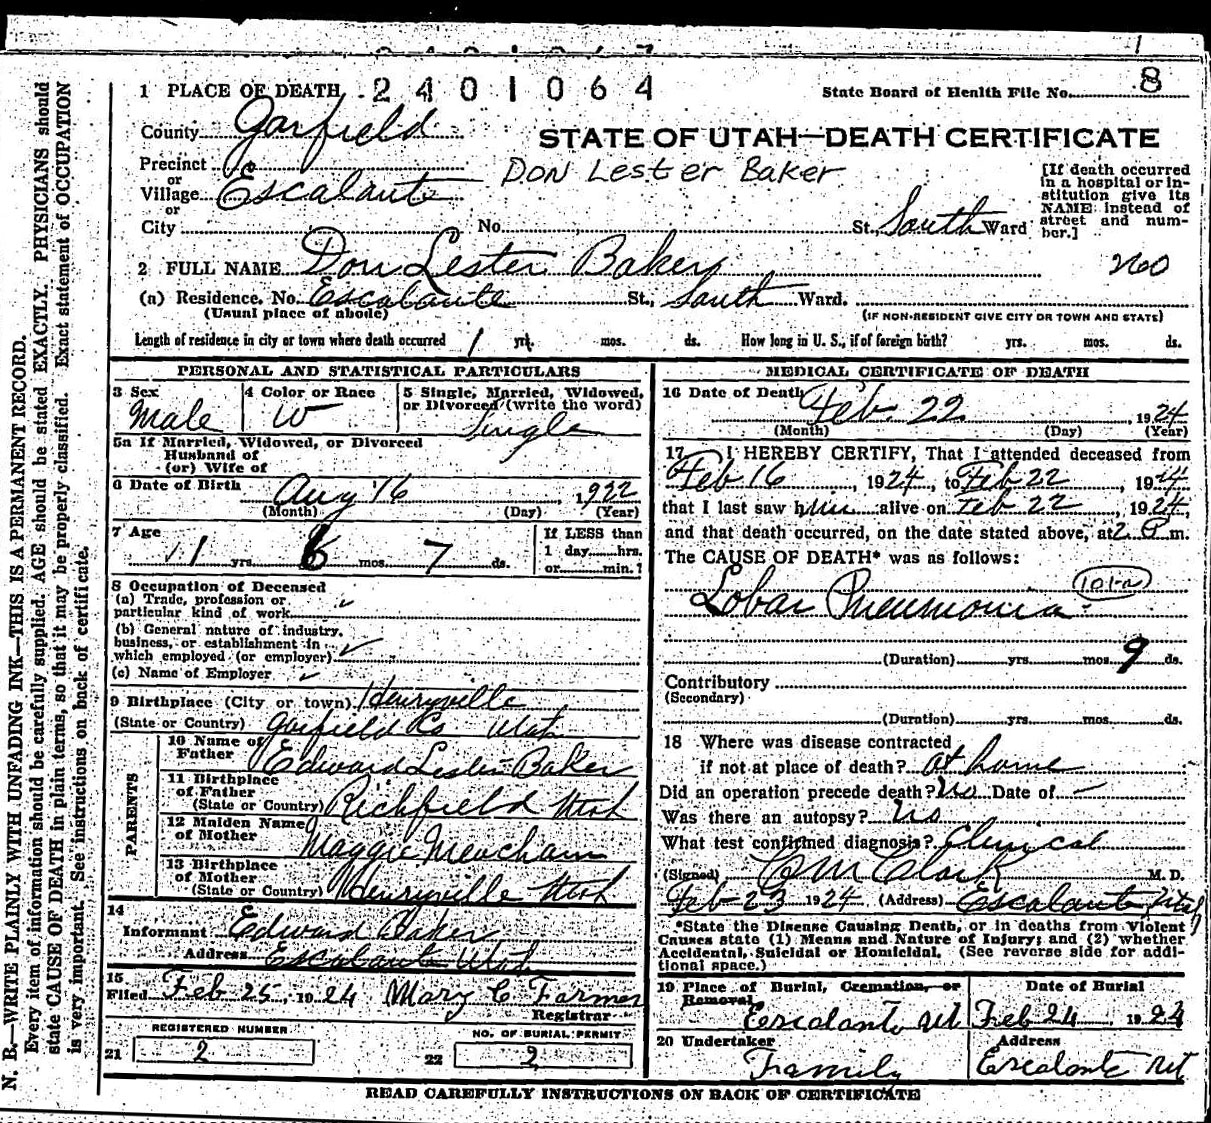 2401064
State Board of Health File No. 8
1 PLACE OF DEATH
County Garfield
STATE OF UTAH—DEATH CERTIFICATE
Precinct
or
Village Escalante
or
City
Don Lester Baker
[If death occurred
in a hospital or in-
stitution give its
NAME instead of
street and num-
ber.]
No. St., South Ward
2 FULL NAME Don Lester Baker
260
(a) Residence. No. Escalante St., South Ward.
(Usual place of abode)
(IF NON-RESIDENT GIVE CITY OR TOWN AND STATE)
Length of residence in city or town where death occurred 1 yrs. mos. ds. How long in U. S., if of foreign birth? yrs. mos. ds.
PERSONAL AND STATISTICAL PARTICULARS
3 Sex
Male
4 Color or Race
W
5 Single, Married, Widowed,
or Divorced (write the word)
Single
5a If Married, Widowed, or Divorced
Husband of
(or) Wife of
6 Date of Birth Aug 16 1922
(Month) (Day) (Year)
7 Age
1 yrs. 6 mos. 7 ds.
If LESS than
1 day hrs.
or min.?
8 Occupation of Deceased
(a) Trade, profession or
particular kind of work
(b) General nature of industry,
business, or establishment in
which employed (or employer)
(c) Name of Employer
9 Birthplace (City or town) Henryville
(State or Country) Garfield Co Utah
PARENTS
10 Name of
Father Edward Lester Baker
11 Birthplace
of Father
(State or Country) Richfield Utah
12 Maiden Name
of Mother Maggie Meacham
13 Birthplace
of Mother
(State or Country) Henryville Utah
14
Informant Edward Baker
Address Escalante Utah
15
Filed Feb 25, 1924 Mary C Farmer
Registrar
REGISTERED NUMBER
21 2
NO. OF BURIAL PERMIT
22 2
MEDICAL CERTIFICATE OF DEATH
16 Date of Death
Feb 22 1924
(Month) (Day) (Year)
17 I HEREBY CERTIFY, That I attended deceased from
Feb 16, 1924, to Feb 22, 1924
that I last saw him alive on Feb 22, 1924,
and that death occurred, on the date stated above, at 2 P m.
The CAUSE OF DEATH* was as follows:
101-a
Lobar Pneumonia
(Duration) yrs. mos. 9 ds.
Contributory
(Secondary)
(Duration) yrs. mos. ds.
18 Where was disease contracted
if not at place of death? At home
Did an operation precede death? No Date of —
Was there an autopsy? No
What test confirmed diagnosis? Clinical
(Signed) Clark M. D.
Feb 23 1924 (Address) Escalante Utah
*State the Disease Causing Death, or in deaths from Violent
Causes state (1) Means and Nature of Injury; and (2) whether
Accidental, Suicidal or Homicidal. (See reverse side for addi-
tional space.)
19 Place of Burial, Cremation, or
Removal
Escalante Ut
Date of Burial
Feb 24, 1924
20 Undertaker
Family
Address
Escalante Ut
READ CAREFULLY INSTRUCTIONS ON BACK OF CERTIFICATE
N. B.—WRITE PLAINLY WITH UNFADING INK—THIS IS A PERMANENT RECORD.
Every item of information should be carefully supplied. AGE should be stated EXACTLY. PHYSICIANS should
state CAUSE OF DEATH in plain terms, so that it may be properly classified. Exact statement of OCCUPATION
is very important. See instructions on back of certificate.